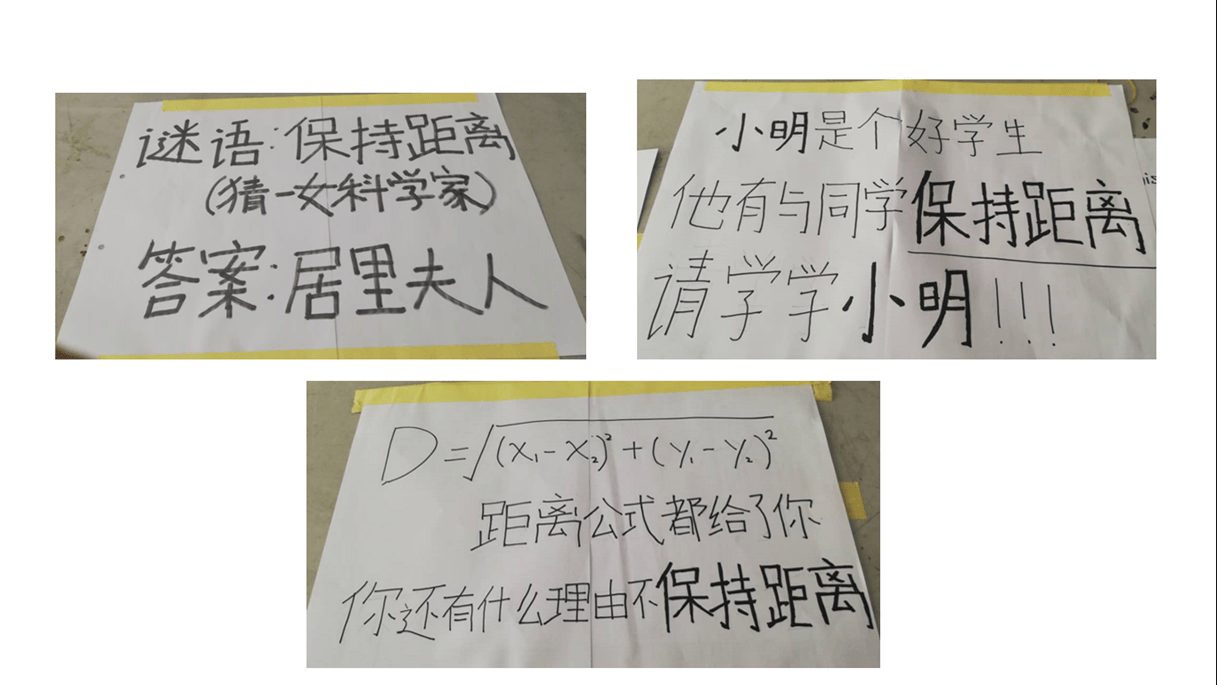 谜语:保持距离
(猜一女科学家)
答案:居里夫人
小明是个好学生
他有与同学保持距离
请学学小明!!!
D=√(x₁-x₂)²+(y₁-y₂)²
距离公式都给了你
你还有什么理由不保持距离
is